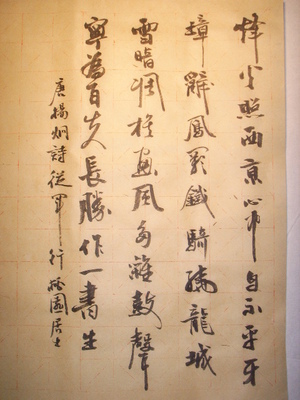 烽火照西京心中自不平牙
璋辭鳳闕鐵騎繞龍城
雪暗凋旗畫風多雜鼓聲
寧為百夫長勝作一書生
唐楊炯詩從軍行園居士